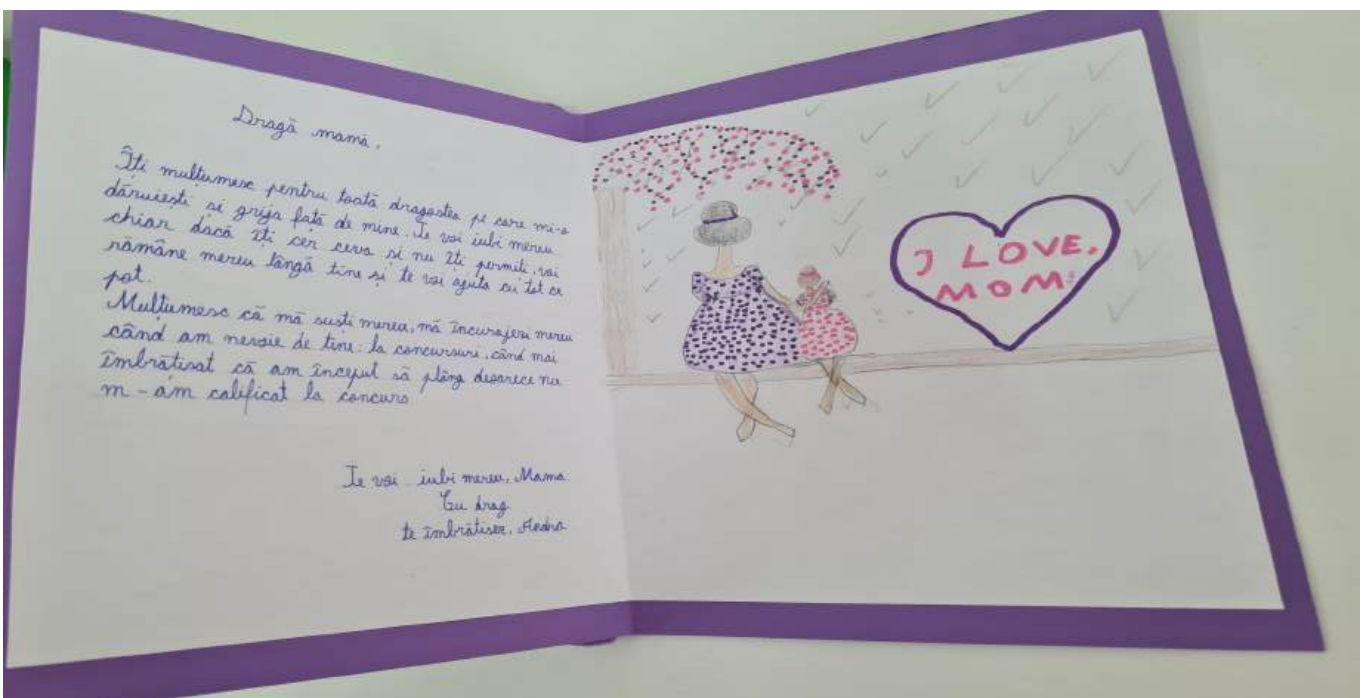 Dragă mamă,
Îți mulțumesc pentru toată dragostea pe care mi-o
dăruiești si grija față de mine. Te voi iubi mereu
chiar dacă îti cer ceva si nu îti permiti, voi
rămâne mereu lângă tine și te voi ajuta cu tot ce
pot.
Mulțumesc că mă susti mereu, mă încurajezi mereu
când am nevoie de tine: la concursuri, când mai
îmbrătisat că am început să plâng deoarece nu
m-am calificat la concurs
Te voi iubi mereu, Mama
Cu drag
te îmbrătisez, Andra
I LOVE,
MOM